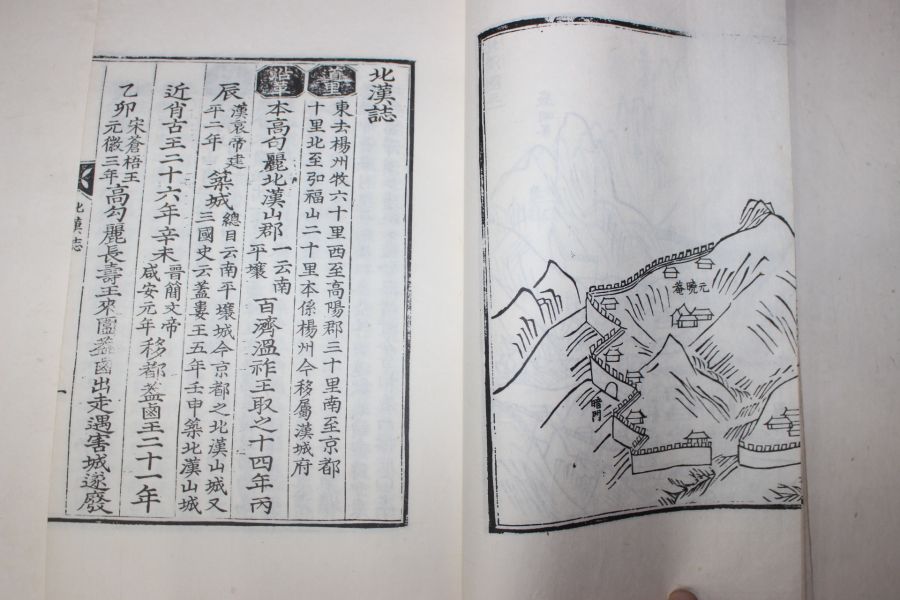 元曉菴
暗門
北漢誌
道里 東去楊州牧六十里西至高陽郡三十里南至京都
十里北至弘福山二十里本係楊州今移屬漢城府
沿革 本高勾麗北漢山郡 一云南
平壤 百濟溫祚王取之十四年丙
辰 漢哀帝建
平二年 築城 總目云南平壤城今京都之北漢山城又
三國史云蓋婁王五年壬申築北漢山城
近肖古王二十六年辛未 晉簡文帝
咸安元年 移都蓋鹵王二十一年
乙卯 宋蒼梧王
元徽三年 高勾麗長壽王來圍蓋鹵出走遇害城遂廢
北漢誌
一